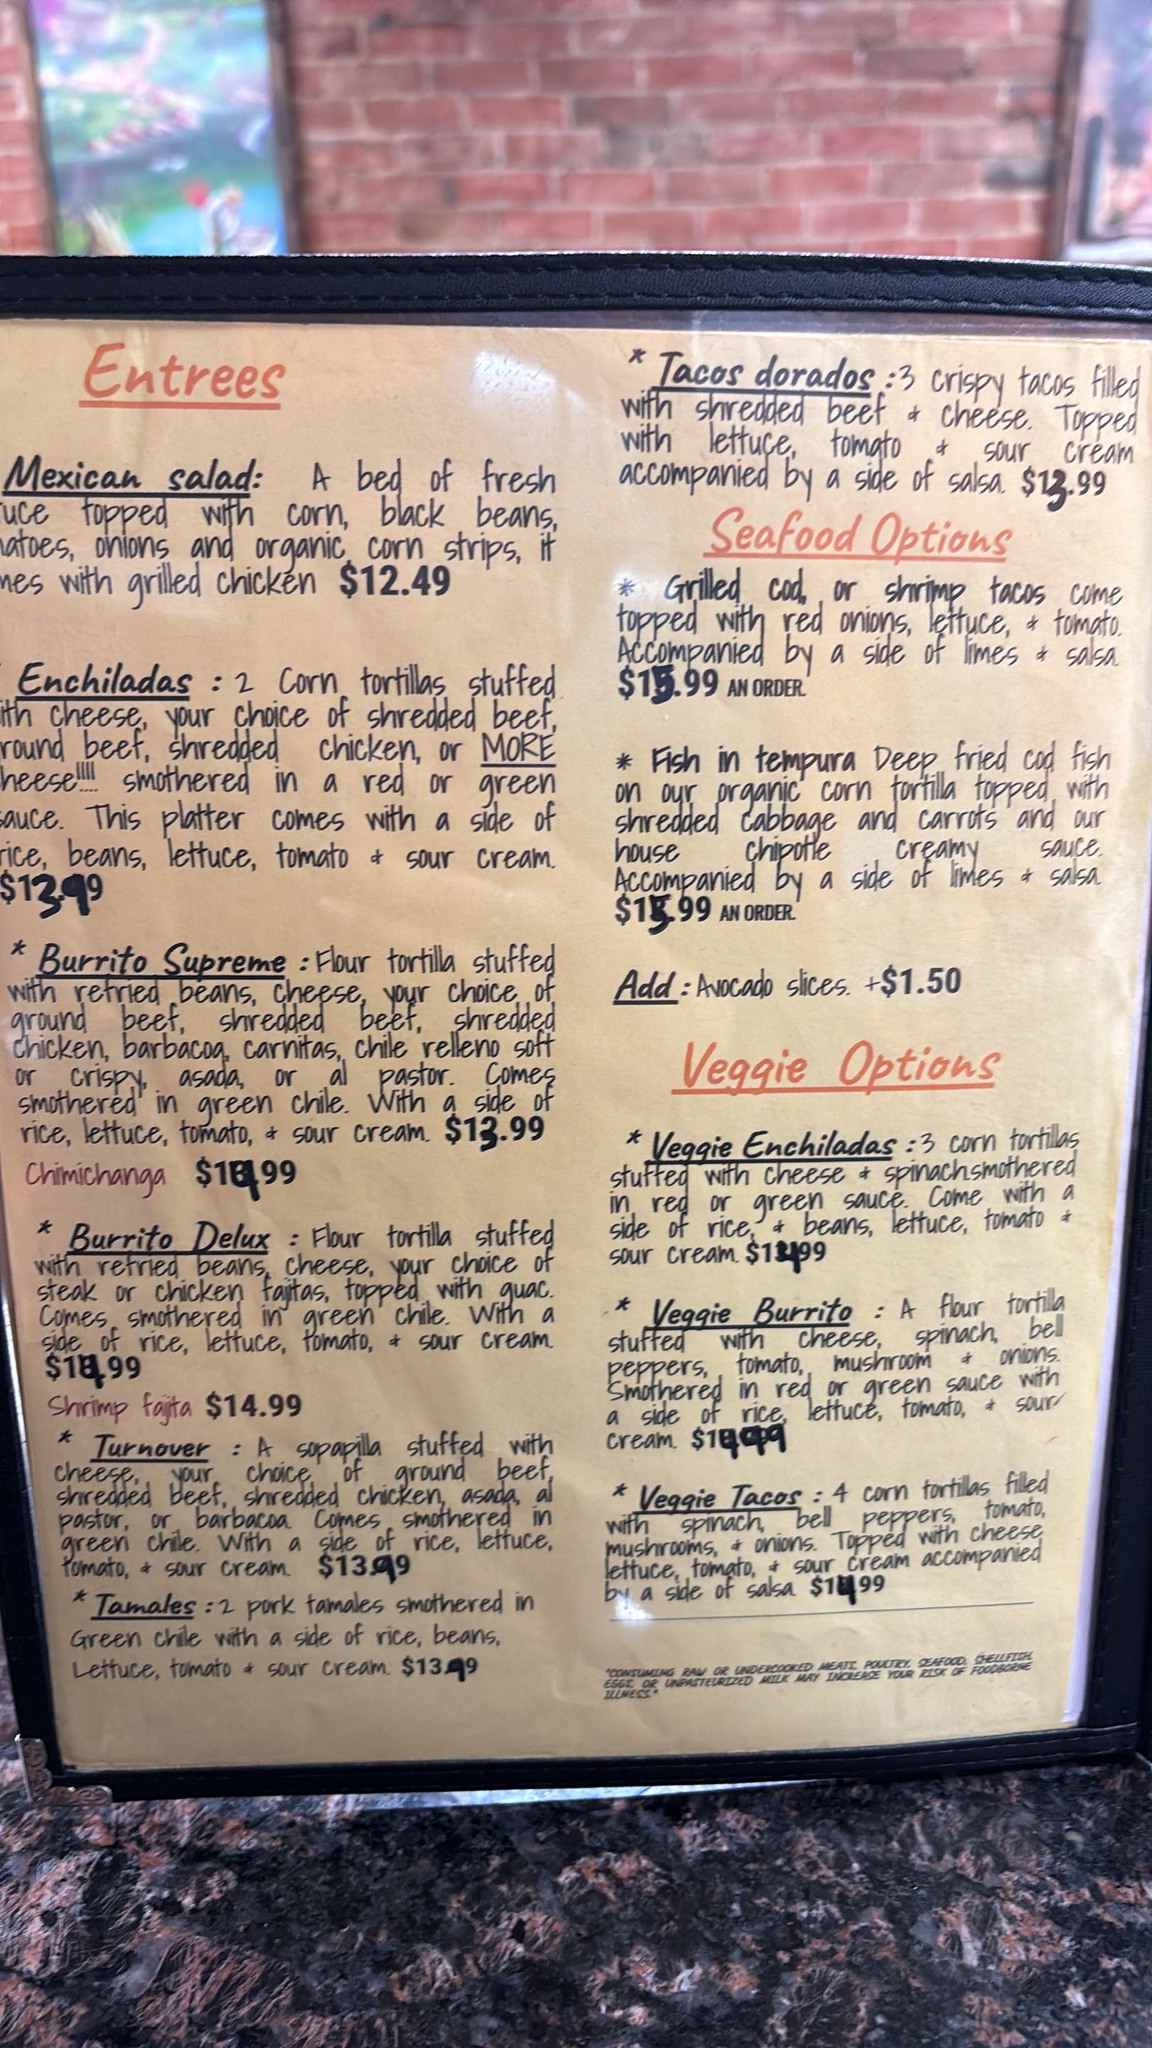 Entrees
Mexican salad: A bed of fresh
uce topped with corn, black beans,
natoes, onions and organic corn strips, it
mes with grilled chicken $12.49
Enchiladas : 2 Corn tortillas stuffed
ith cheese, your choice of shredded beef,
round beef, shredded chicken, or MORE
heese!!!! smothered in a red or green
sauce. This platter comes with a side of
rice, beans, lettuce, tomato & sour cream.
$13.99
* Burrito Supreme : Flour tortilla stuffed
with refried beans, cheese, your choice of
ground beef, shredded beef, shredded
chicken, barbacoa, carnitas, chile relleno soft
or crispy, asada, or al pastor. Comes
smothered in green chile. With a side of
rice, lettuce, tomato, & sour cream. $13.99
Chimichanga $14.99
* Burrito Delux : Flour tortilla stuffed
with refried beans, cheese, your choice of
steak or chicken fajitas, topped with guac.
Comes smothered in green chile. With a
side of rice, lettuce, tomato, & sour cream.
$14.99
Shrimp fajita $14.99
* Turnover : A sopapilla stuffed with
cheese, your choice of ground beef,
shredded beef, shredded chicken, asada, al
pastor, or barbacoa. Comes smothered in
green chile. With a side of rice, lettuce,
tomato, & sour cream. $13.99
* Tamales : 2 pork tamales smothered in
Green chile with a side of rice, beans,
Lettuce, tomato & sour cream. $13.99
* Tacos dorados : 3 crispy tacos filled
with shredded beef & cheese. Topped
with lettuce, tomato & sour cream
accompanied by a side of salsa. $13.99
Seafood Options
* Grilled cod, or shrimp tacos come
topped with red onions, lettuce, & tomato.
Accompanied by a side of limes & salsa.
$15.99 AN ORDER.
* Fish in tempura Deep fried cod fish
on our organic corn tortilla topped with
shredded cabbage and carrots and our
house chipotle creamy sauce.
Accompanied by a side of limes & salsa.
$15.99 AN ORDER.
Add : Avocado slices. +$1.50
Veggie Options
* Veggie Enchiladas : 3 corn tortillas
stuffed with cheese & spinach.smothered
in red or green sauce. Come with a
side of rice, & beans, lettuce, tomato &
sour cream. $14.99
* Veggie Burrito : A flour tortilla
stuffed with cheese, spinach, bell
peppers, tomato, mushroom & onions.
Smothered in red or green sauce with
a side of rice, lettuce, tomato, & sour
cream. $14.99
* Veggie Tacos : 4 corn tortillas filled
with spinach, bell peppers, tomato,
mushrooms, & onions. Topped with cheese,
lettuce, tomato, & sour cream accompanied
by a side of salsa. $14.99
"CONSUMING RAW OR UNDERCOOKED MEATS, POULTRY, SEAFOOD, SHELLFISH,
EGGS, OR UNPASTEURIZED MILK MAY INCREASE YOUR RISK OF FOODBORNE
ILLNESS."